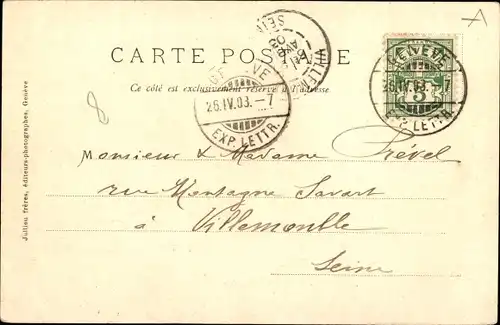 CARTE POSTALE
Ce côté est exclusivement réservé à l'adresse.
GENÈVE
26.IV.03.–7
EXP. LETTR.
GENÈVE
26.IV.03.–7
EXP. LETTR.
5
Monsieur & Madame Prével
rue Montagne Savart
à Villemomble
Seine
Jullien frères, éditeurs-photographes, Genève
8
A